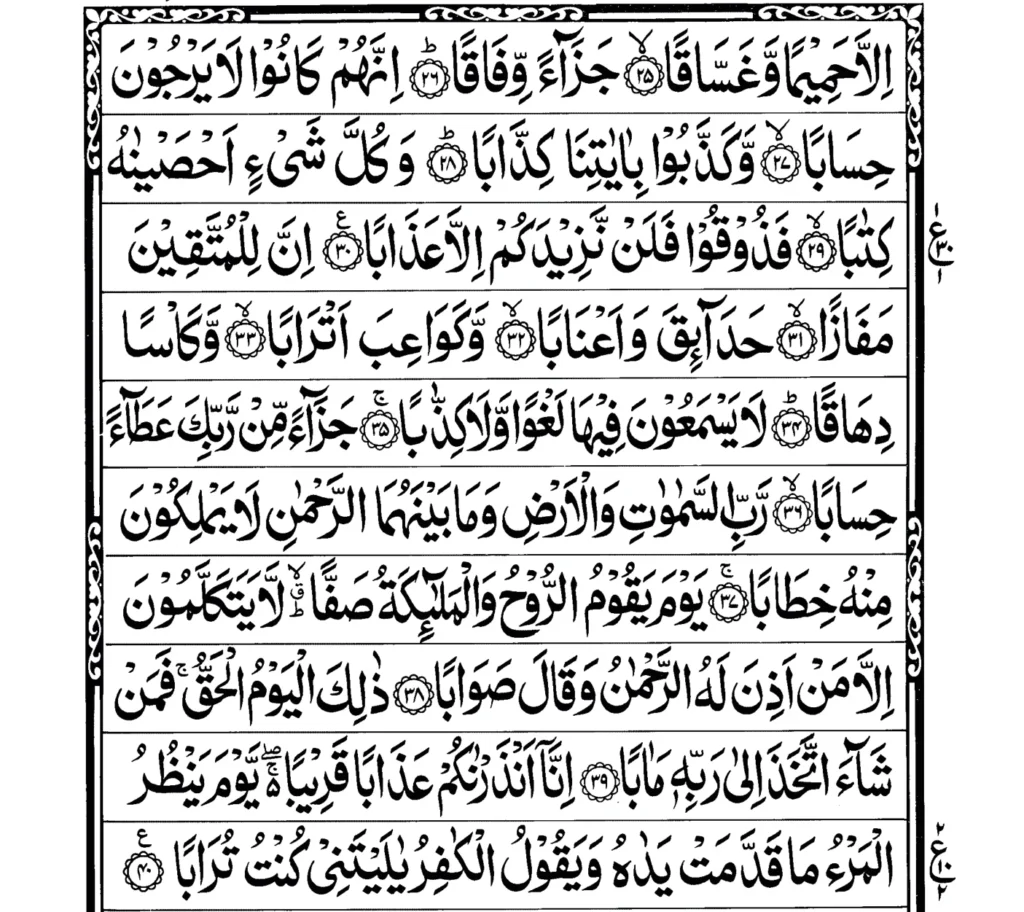 اِلَّا حَمِيْمًا وَّغَسَّاقًا ۙ‏﴿۲۵﴾ جَزَآءً وِّفَاقًا ؕ‏﴿۲۶﴾ اِنَّهُمْ كَانُوْا لَا يَرْجُوْنَ
حِسَابًا ۙ‏﴿۲۷﴾ وَّكَذَّبُوْا بِاٰيٰتِنَا كِذَّابًا ؕ‏﴿۲۸﴾ وَكُلَّ شَیْءٍ اَحْصَيْنٰهُ
كِتٰبًا ۙ‏﴿۲۹﴾ فَذُوْقُوْا فَلَنْ نَّزِيْدَكُمْ اِلَّا عَذَابًا ﴿۳۰﴾ ع اِنَّ لِلْمُتَّقِيْنَ
۱ ع ۳۰ ۱
مَفَازًا ۙ‏﴿۳۱﴾ حَدَآئِقَ وَاَعْنَابًا ۙ‏﴿۳۲﴾ وَّكَوَاعِبَ اَتْرَابًا ۙ‏﴿۳۳﴾ وَّكَاْسًا
دِهَاقًا ؕ‏﴿۳۴﴾ لَا يَسْمَعُوْنَ فِيْهَا لَغْوًا وَّلَا كِذّٰبًا ۚ‏﴿۳۵﴾ جَزَآءً مِّنْ رَّبِّكَ عَطَآءً
حِسَابًا ۙ‏﴿۳۶﴾ رَّبِّ السَّمٰوٰتِ وَالْاَرْضِ وَمَا بَيْنَهُمَا الرَّحْمٰنِ لَا يَمْلِكُوْنَ
مِنْهُ خِطَابًا ۚ‏﴿۳۷﴾ يَوْمَ يَقُوْمُ الرُّوْحُ وَالْمَلٰٓئِكَةُ صَفًّا ۙۗؕ لَّا يَتَكَلَّمُوْنَ
اِلَّا مَنْ اَذِنَ لَهُ الرَّحْمٰنُ وَقَالَ صَوَابًا ﴿۳۸﴾ ذٰلِكَ الْيَوْمُ الْحَقُّ ۚ فَمَنْ
شَآءَ اتَّخَذَ اِلٰى رَبِّهٖ مَاٰبًا ﴿۳۹﴾ اِنَّاۤ اَنْذَرْنٰكُمْ عَذَابًا قَرِيْبًا ۖۚ۬ يَّوْمَ يَنْظُرُ
الْمَرْءُ مَا قَدَّمَتْ يَدٰهُ وَيَقُوْلُ الْكٰفِرُ يٰلَيْتَنِیْ كُنْتُ تُرَابًا ﴿۴۰﴾ ع
۲ ع ۱۰ ۲